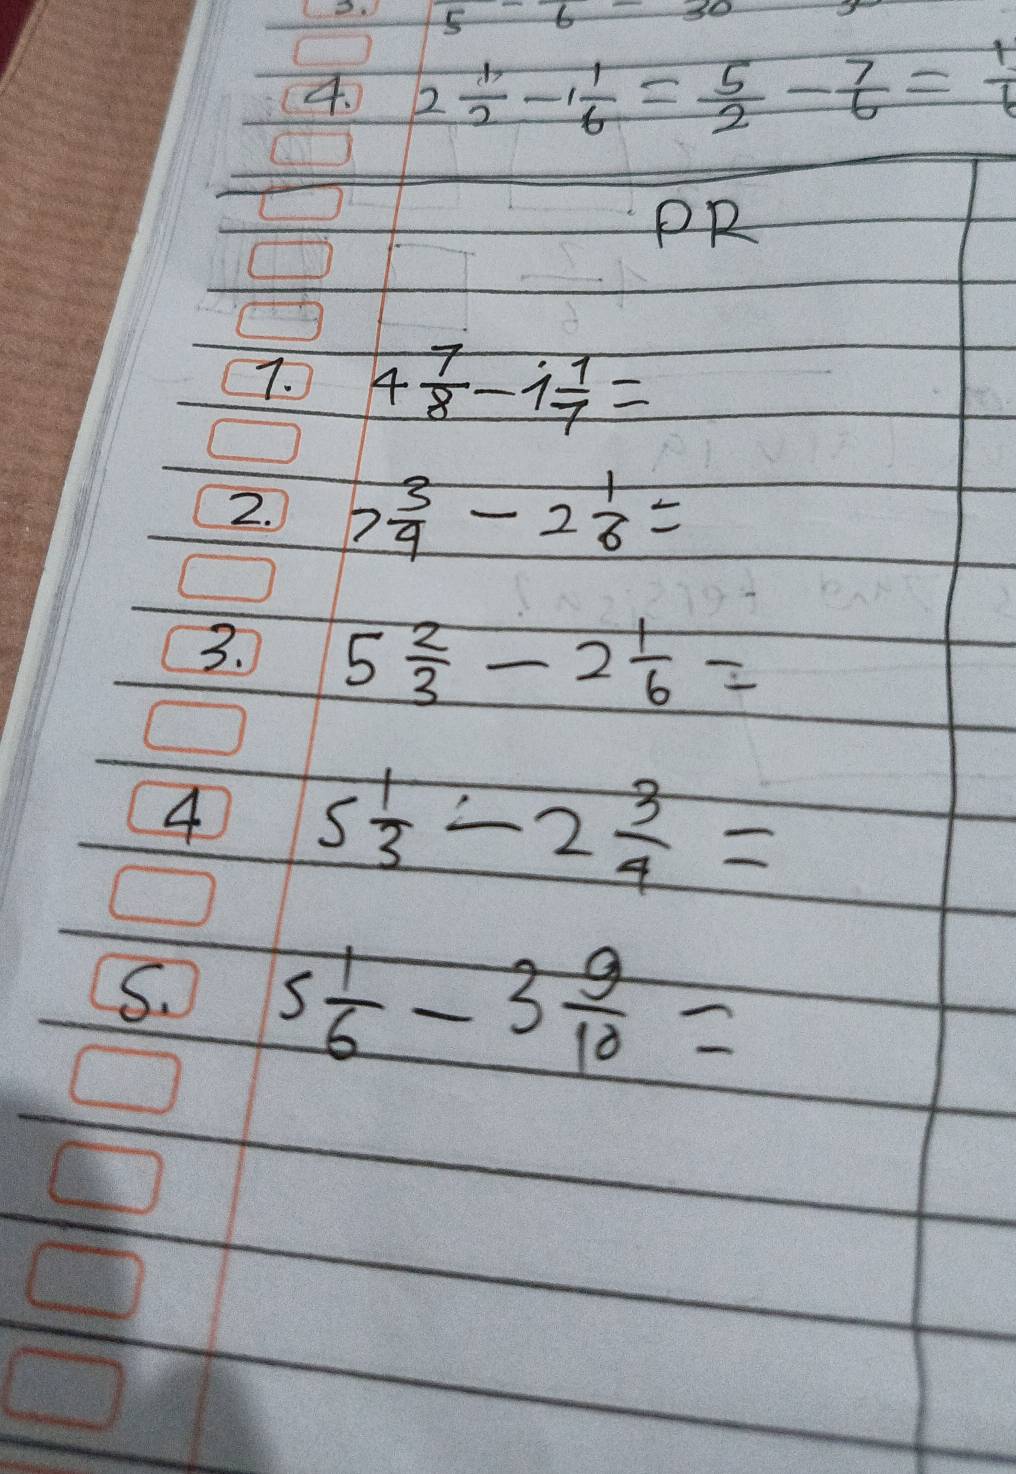 3. 5 6 30
4. 2 1/2 - 1 1/6 = 5/2 - 7/6 =
PR
1. 4 7/8 - 1 1/7 =
2. 7 3/4 - 2 1/8 =
3. 5 2/3 - 2 1/6 =
4 5 1/3 - 2 3/4 =
5. 5 1/6 - 3 9/10 =